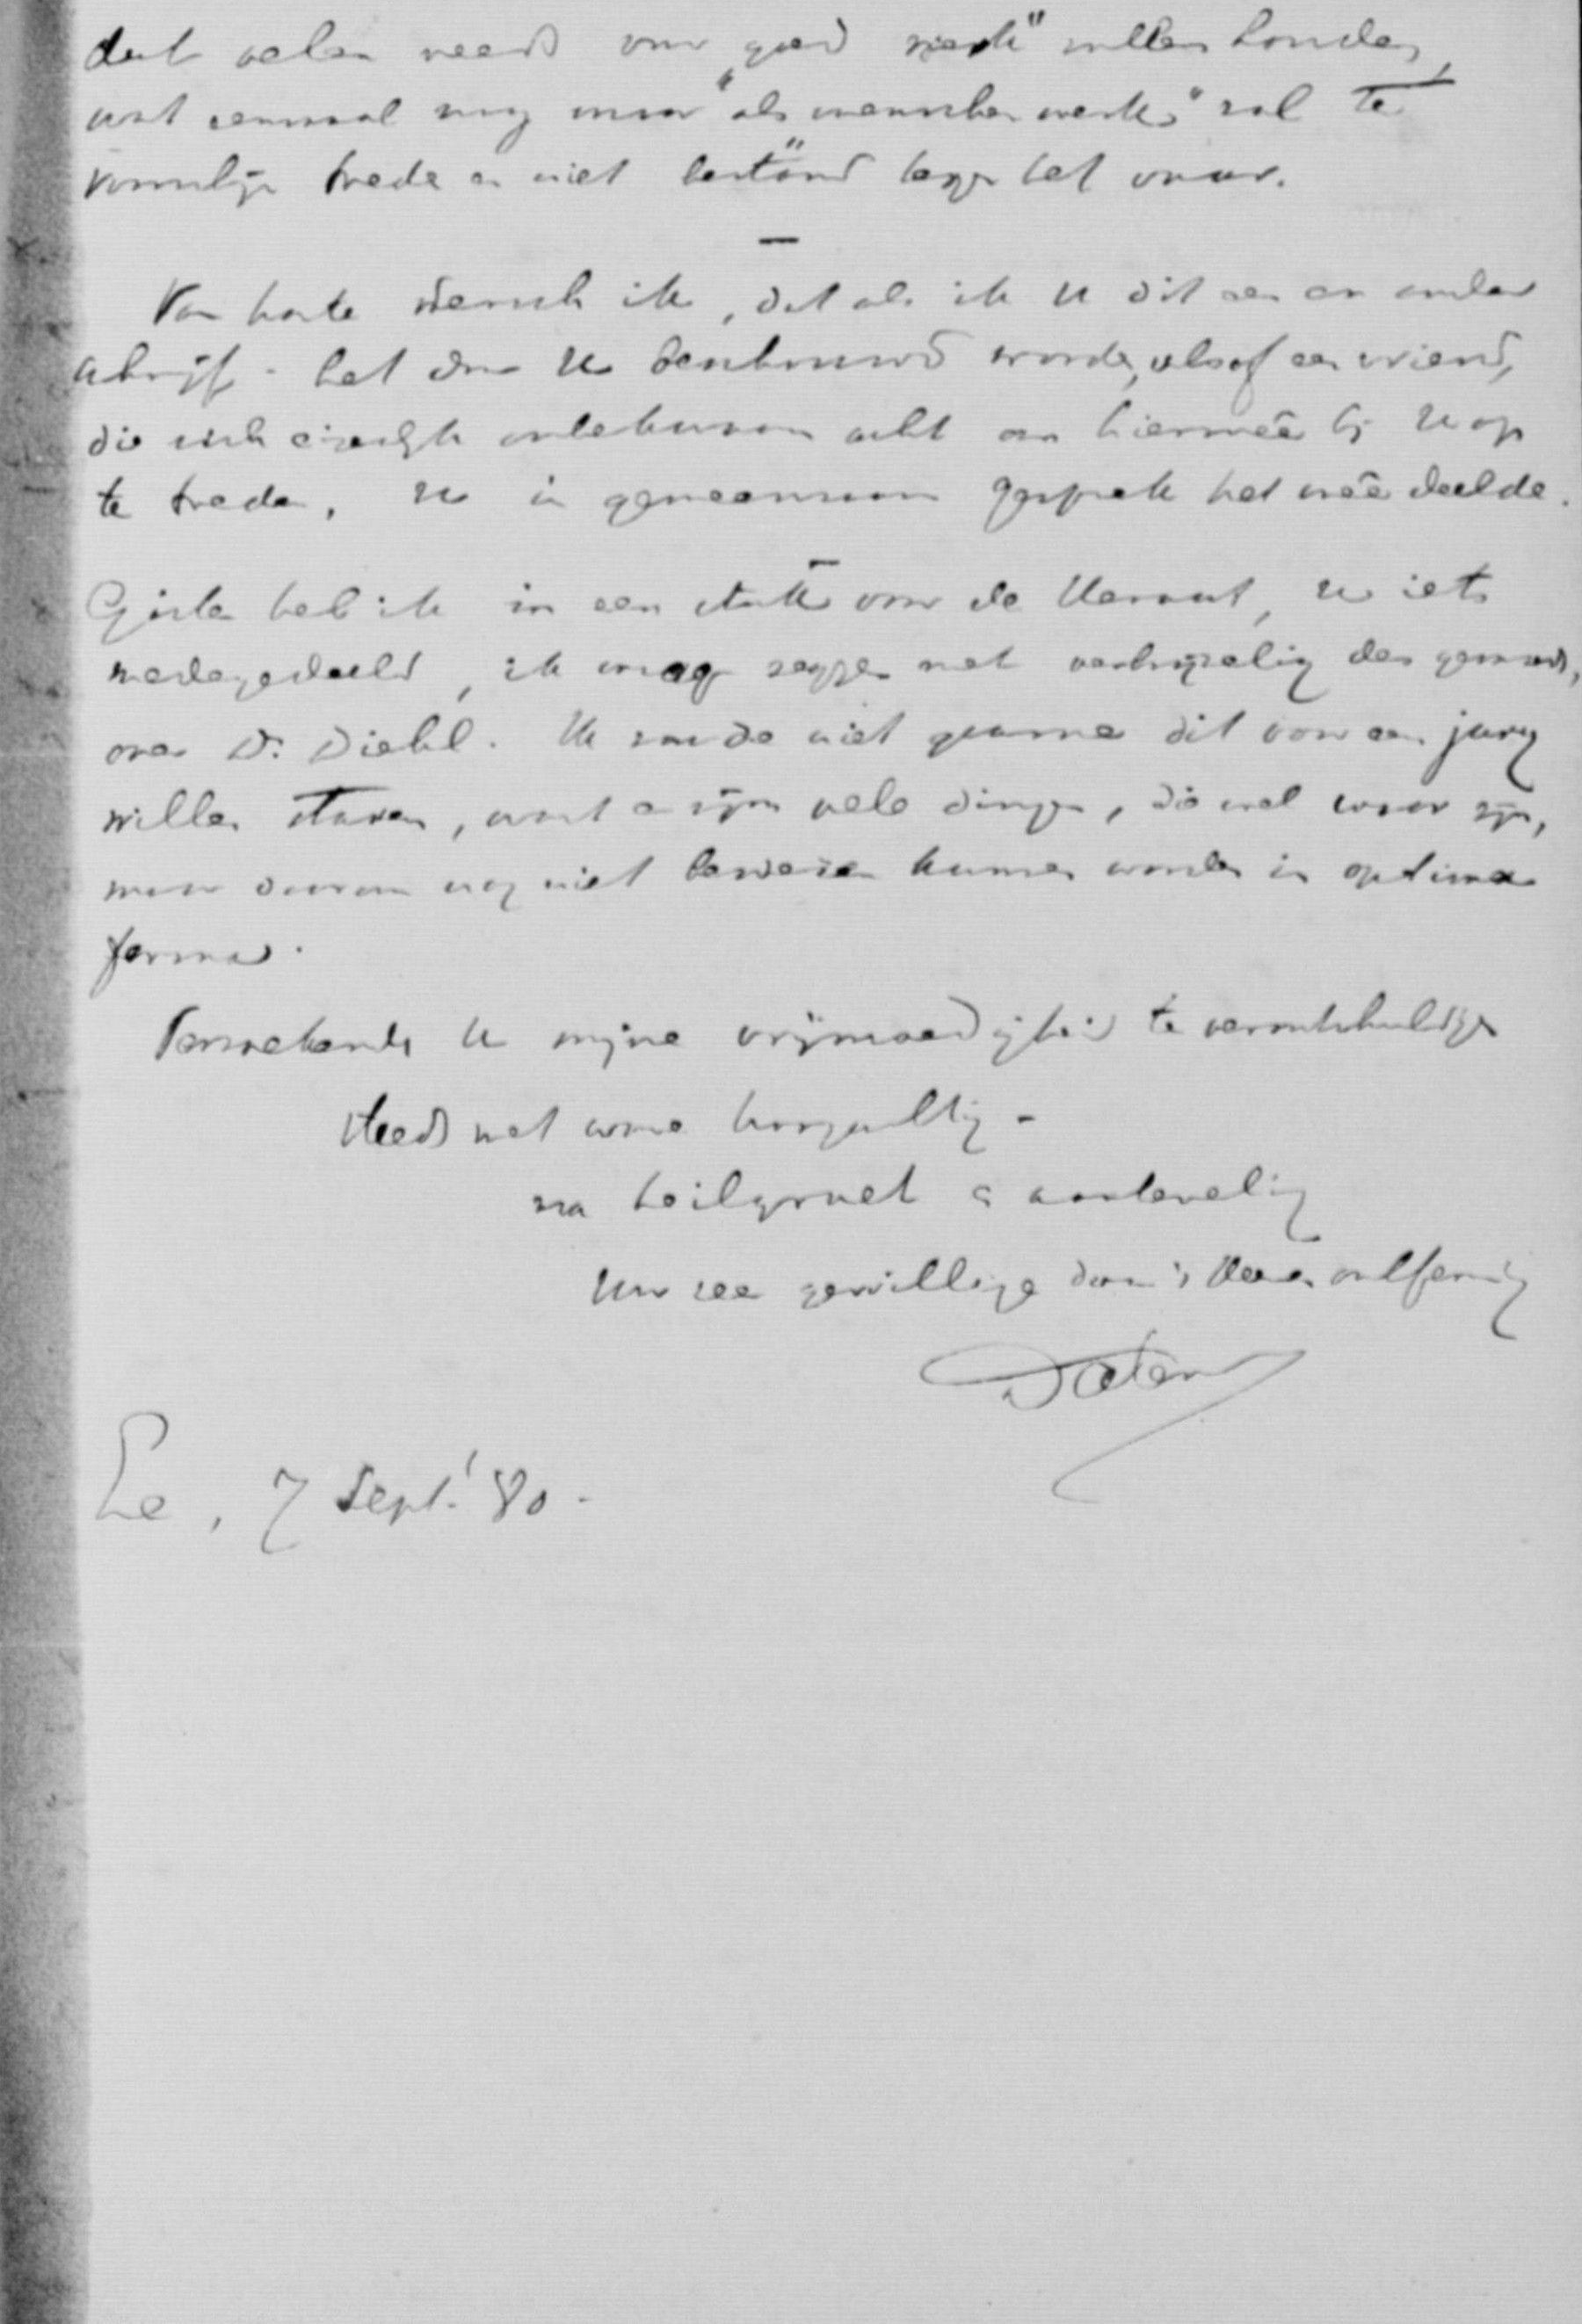 dat velen reeds voor „goed werk" willen houden,
wat eenmaal nog maar „als menschenwerk" zal te
voorschijn treden en niet bestand tegen het vuur.
—
Van harte wensch ik, dat als ik U dit een en ander
schrijf - het door U beschouwd worde, alsof een vriend,
die zich eigenlijk onbekwaam acht om hiermeê bij U op
te treden, U in gemeenzaam gesprek het meêdeelde.
Gister heb ik in een stuk voor de Heraut, U iets
medegedeeld, ik mag zeggen met verbrijzeling des gemoeds,
over Dr. Diehl. Ik zoude niet gaarne dit voor een jury
willen staven, want er zijn vele dingen, die wel waar zijn,
maar daarom nog niet bewezen kunnen worden in optima
forma.
Verzoekende U mijne vrijmoedigheid te verontschuldigen
steeds met ware hoogachting -
na heilgroet &amp; aanbeveling
Uw zeer gewillige in 's Heeren ontferming
Le, 7 Sept.' 80.